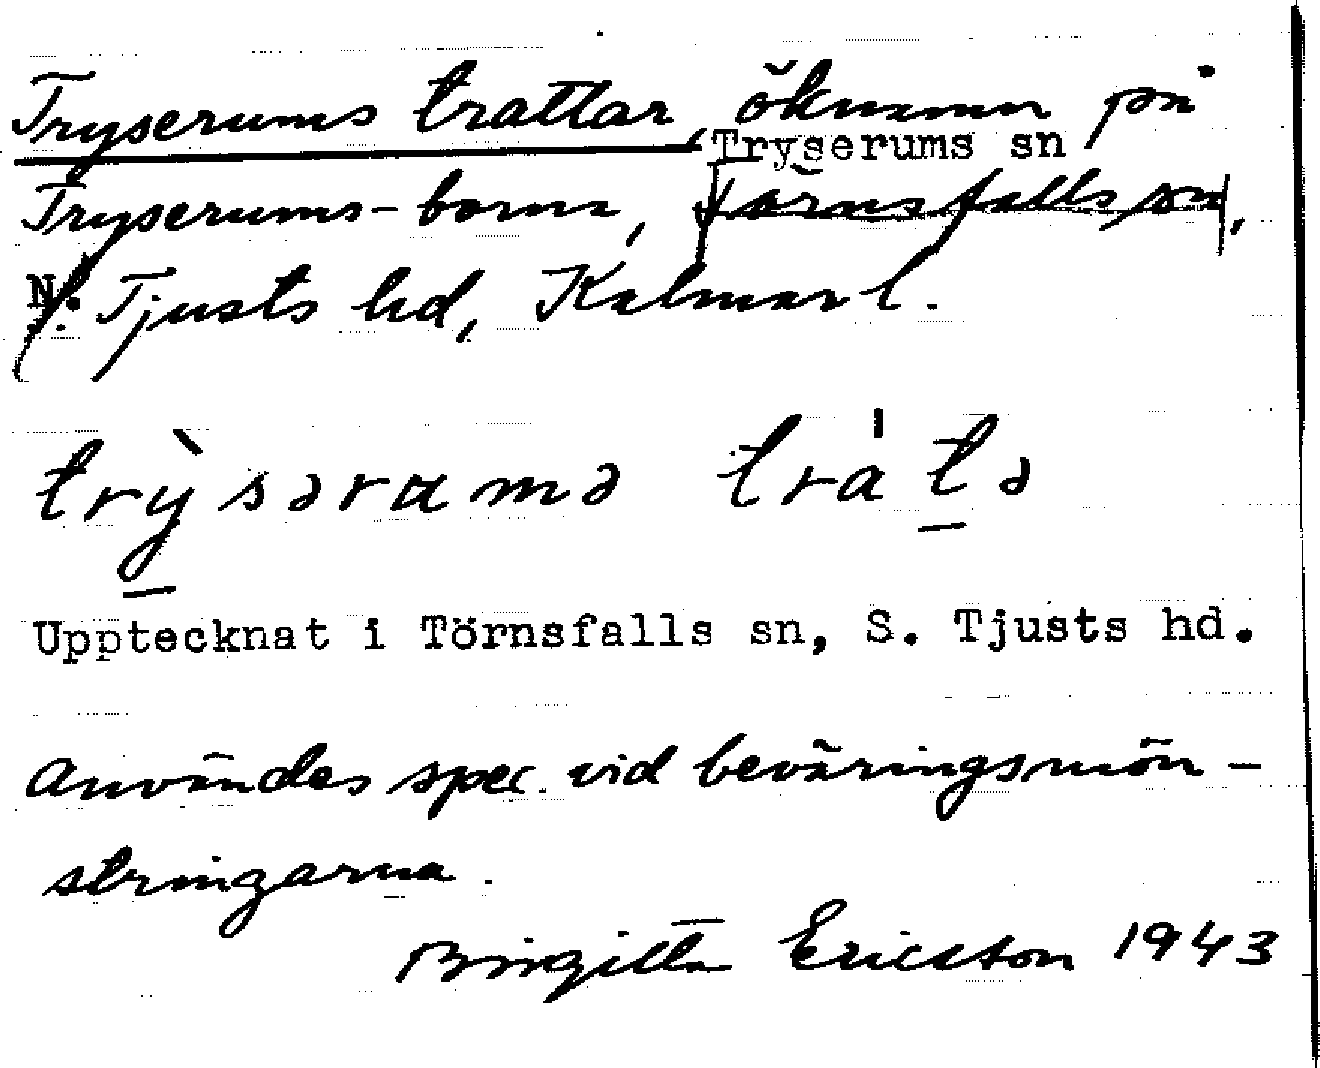 Tryserums trattar, öknamn på
Tryserums sn
Tryserums-borna, Törnsfalls sn,
N. Tjusts hd, Kalmar l.
trỳsəramə tra̍tə
Upptecknat i Törnsfalls sn, S. Tjusts hd.
Användes spec. vid beväringsmön-
stringarna.
Birgitta Ericston 1943